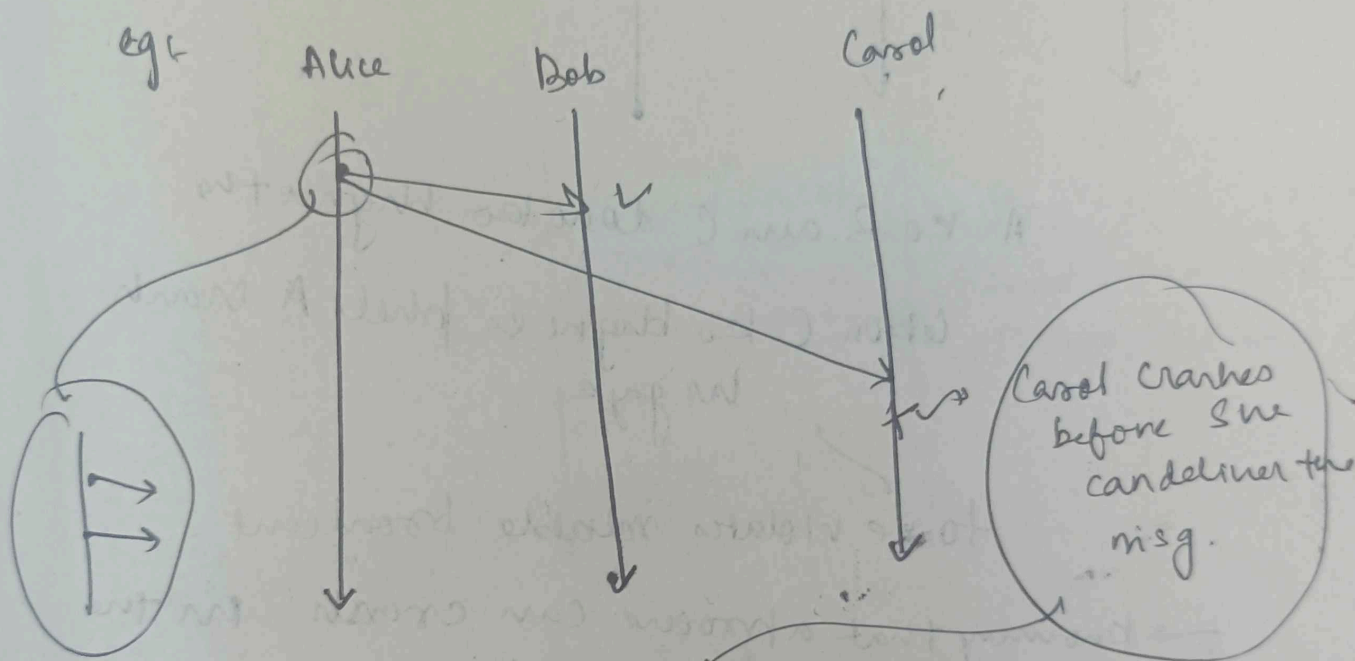 eg:-
Alice Bob Carol
Carol crashes
before she
can deliver the
msg.